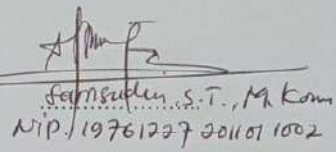 Samsudin, S.T., M.Kom
NIP. 19761227 201101 1002